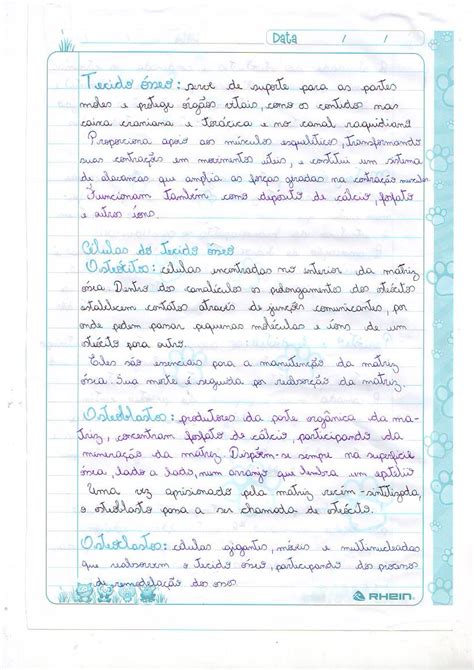 Data / /
Tecido ósseo: serve de suporte para as partes
moles e protege órgãos vitais, como os contidos nas
caixa craniana e torácica e no canal raquidiano
Proporciona apoio aos músculos esqueléticos, transformando
suas contrações em movimentos úteis, e contitui um sistema
de alavancas que amplia as forças geradas na contração muscular.
Funcionam também como depósito de cálcio, fosfato
e outros íons.
Células do tecido ósseo
Osteócitos: células encontradas no interior da matriz
óssea. Dentro dos canalículos os prolongamentos dos osteócitos
estabelecem contatos através de junções comunicantes, por
onde podem passar pequenas moléculas e íons de um
osteócito para outro.
Eles são esenciais para a manutenção da matriz
óssea. Sua morte é seguida por reabsorção da matriz.
Osteoblastos: produtores da parte orgânica da ma-
triz, concentram fosfato de cálcio, participando da
mineração da matriz. Dispõem-se sempre na superfície
óssea, lado a lado, num arranjo que lembra um epitélio
Uma vez aprisionado pela matriz recém-sintetizada,
o osteoblasto passa a ser chamada de osteócito.
Osteoclastos: células gigantes, móveis e multinucleadas
que reabsorvem o tecido ósseo, participando dos processos
de remodelação dos ossos
RHEIN